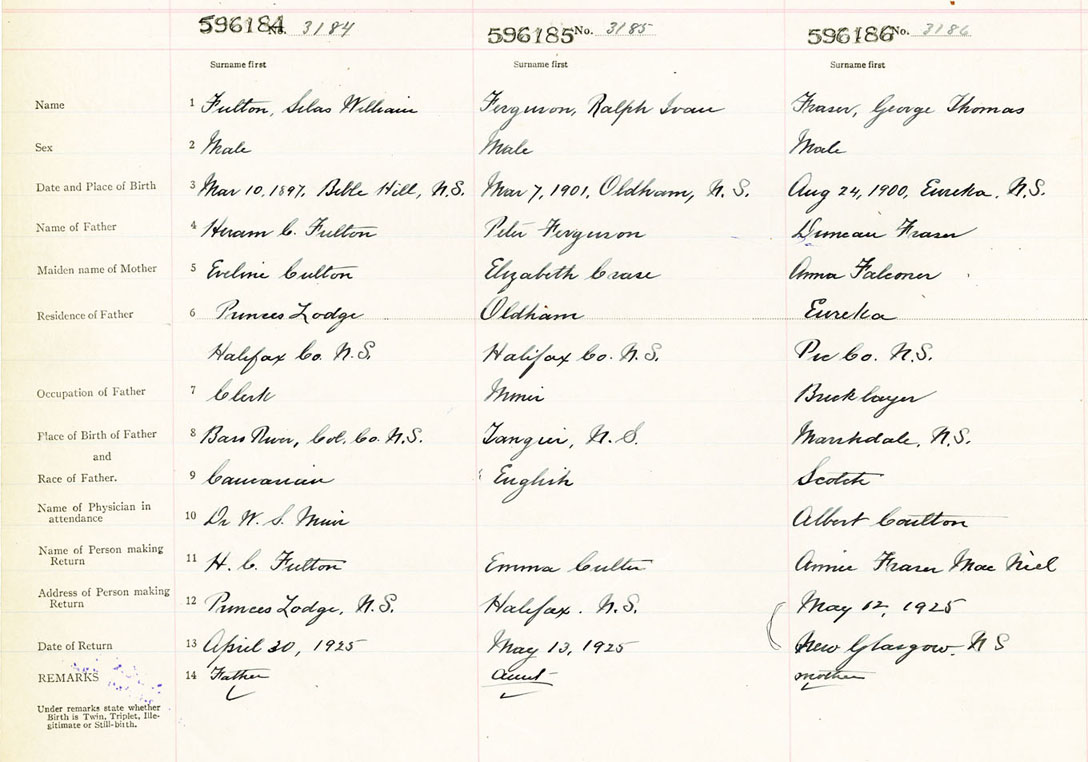 596184 No. 3184 596185 No. 3185 596186 No. 3186
Surname first Surname first Surname first
Name 1 Fulton, Silas William Ferguson, Ralph Ivan Fraser, George Thomas
Sex 2 Male Male Male
Date and Place of Birth 3 Mar 10, 1897, Bible Hill, N.S. Mar 7, 1901, Oldham, N.S. Aug 24, 1900, Eureka, N.S.
Name of Father 4 Hiram C. Fulton Peter Ferguson Duncan Fraser
Maiden name of Mother 5 Eveline Culton Elizabeth Crase Anna Falconer
Residence of Father 6 Princes Lodge Oldham Eureka
Halifax Co. N.S. Halifax Co. N.S. Pic Co. N.S.
Occupation of Father 7 Clerk Miner Bricklayer
Place of Birth of Father 8 Bass River, Col. Co. N.S. Tangier, N.S. Marshdale, N.S.
and
Race of Father. 9 Caucasian English Scotch
Name of Physician in
attendance 10 Dr W. S. Muir Albert Coulton
Name of Person making
Return 11 H. C. Fulton Emma Annie Fraser Mac Niel
Address of Person making
Return 12 Princes Lodge, N.S. Halifax. N.S. May 12, 1925
Date of Return 13 April 30, 1925 May 13, 1925 New Glasgow. N S
REMARKS 14 Father aunt mother
Under remarks state whether
Birth is Twin, Triplet, Ille-
gitimate or Still-birth.